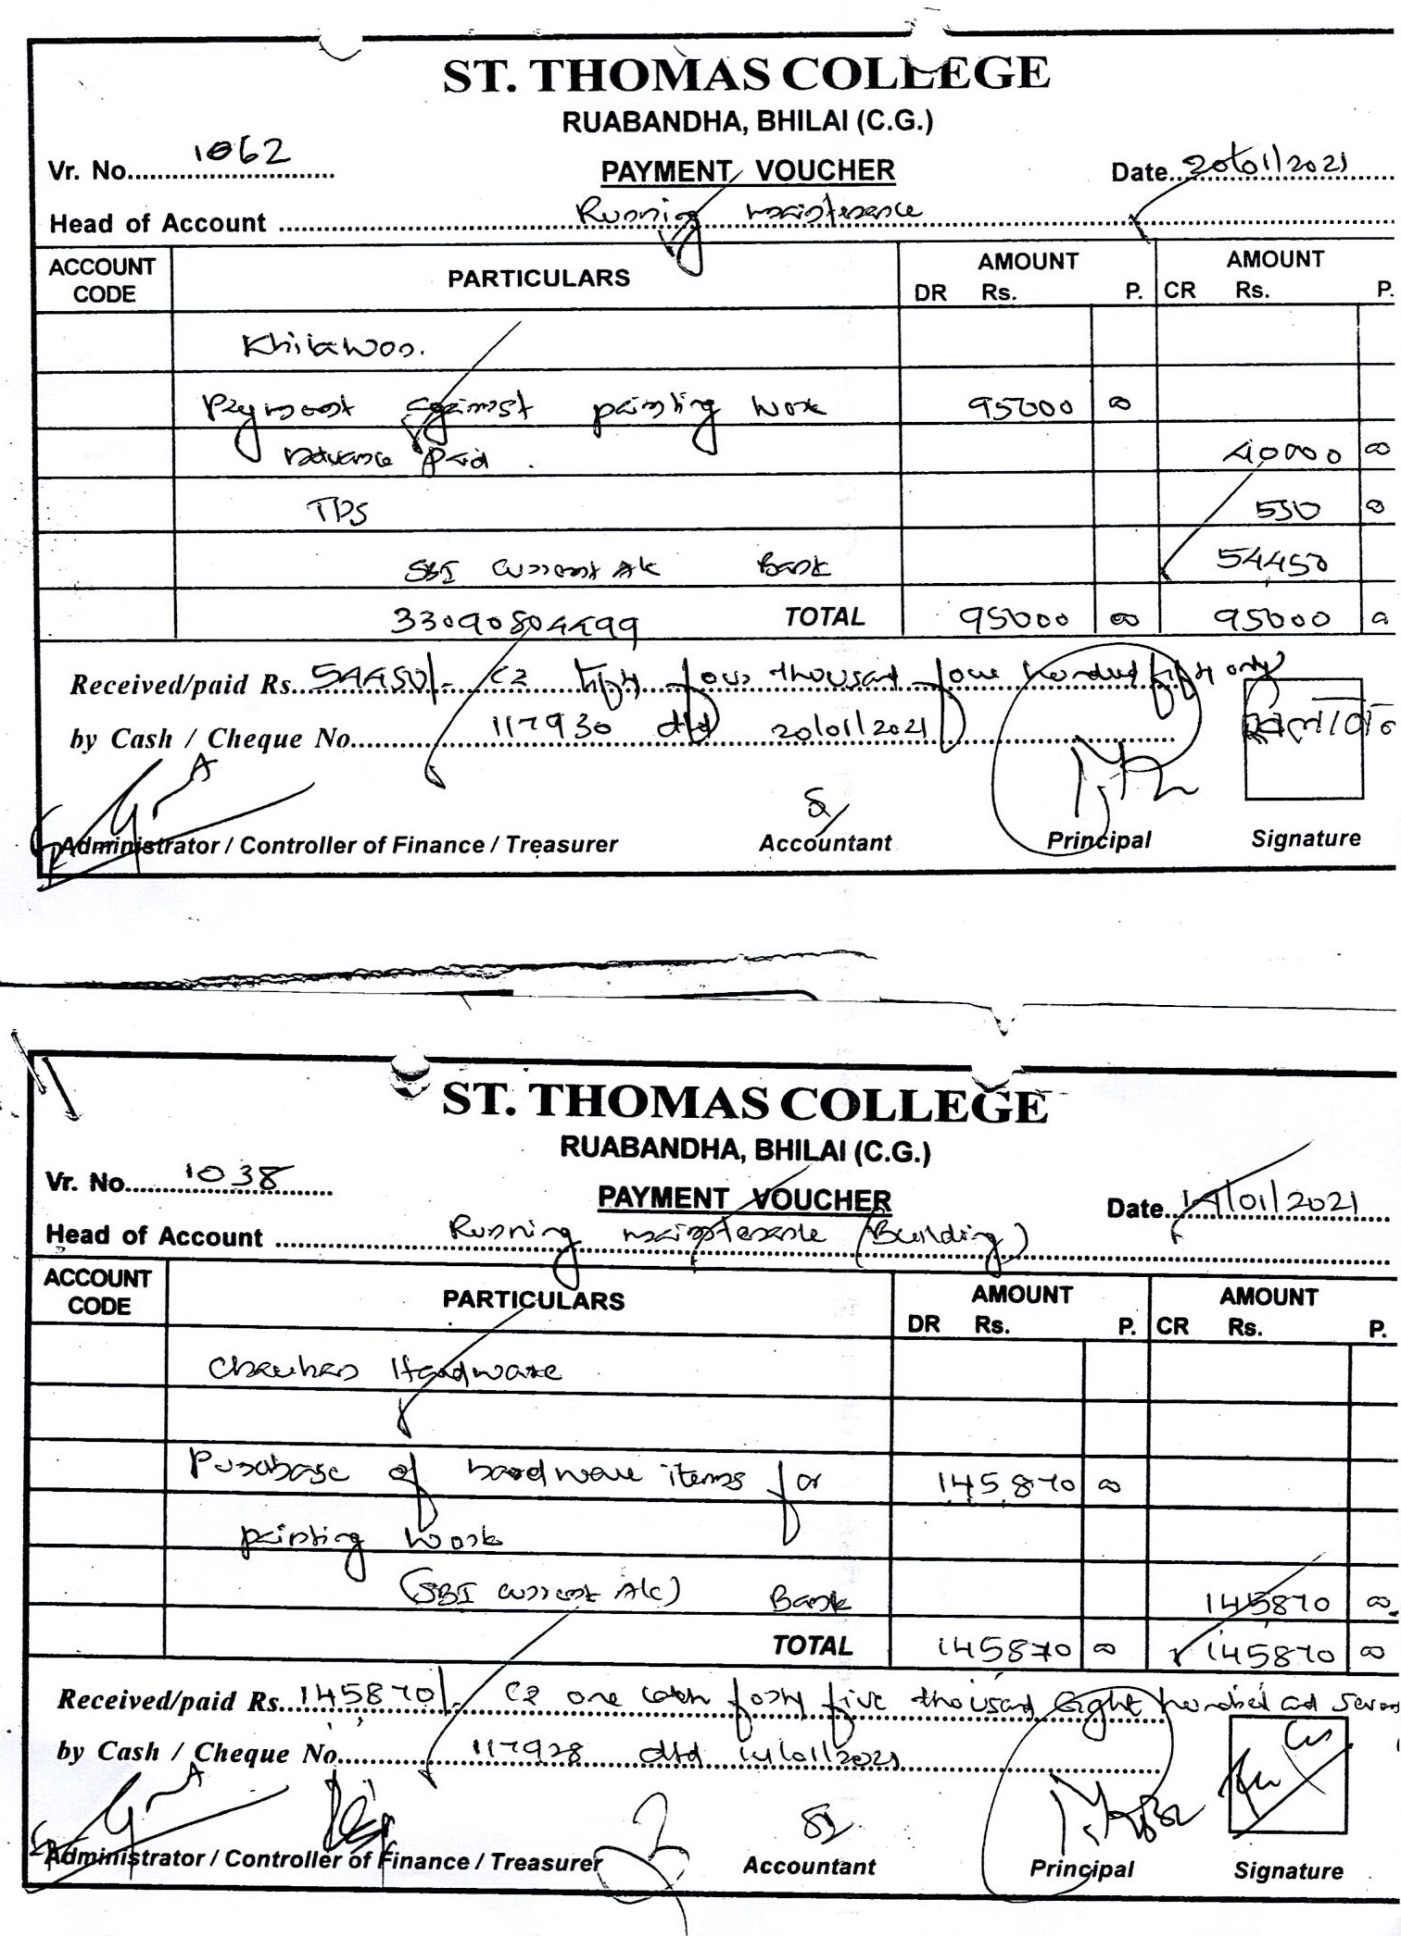 ST. THOMAS COLLEGE
RUABANDHA, BHILAI (C.G.)
Vr. No. 1062 PAYMENT VOUCHER Date 20/01/2021
Head of Account Running maintenance
ACCOUNT CODE PARTICULARS AMOUNT DR Rs. P. AMOUNT CR Rs. P.
Khilawan.
Payment against painting work 95000 00
Advance paid. 40000 00
TDS 550 00
SBI current A/c Bank 54450
33090804499 TOTAL 95000 00 95000
Received/paid Rs. 54450/- fifty four thousand four hundred fifty only
by Cash / Cheque No. 117930 dtd 20/01/2021
Administrator / Controller of Finance / Treasurer Accountant Principal Signature
ST. THOMAS COLLEGE
RUABANDHA, BHILAI (C.G.)
Vr. No. 1038 PAYMENT VOUCHER Date 14/01/2021
Head of Account Running maintenance (Building)
ACCOUNT CODE PARTICULARS AMOUNT DR Rs. P. AMOUNT CR Rs. P.
Chauhan Hardware
Purchase of hardware items for 145870 00
painting work
(SBI current A/c) Bank 145870 00
TOTAL 145870 00 145870 00
Received/paid Rs. 145870/- one lakh forty five thousand eight hundred and seven
by Cash / Cheque No. 117928 dtd 14/01/2021
Administrator / Controller of Finance / Treasurer Accountant Principal Signature